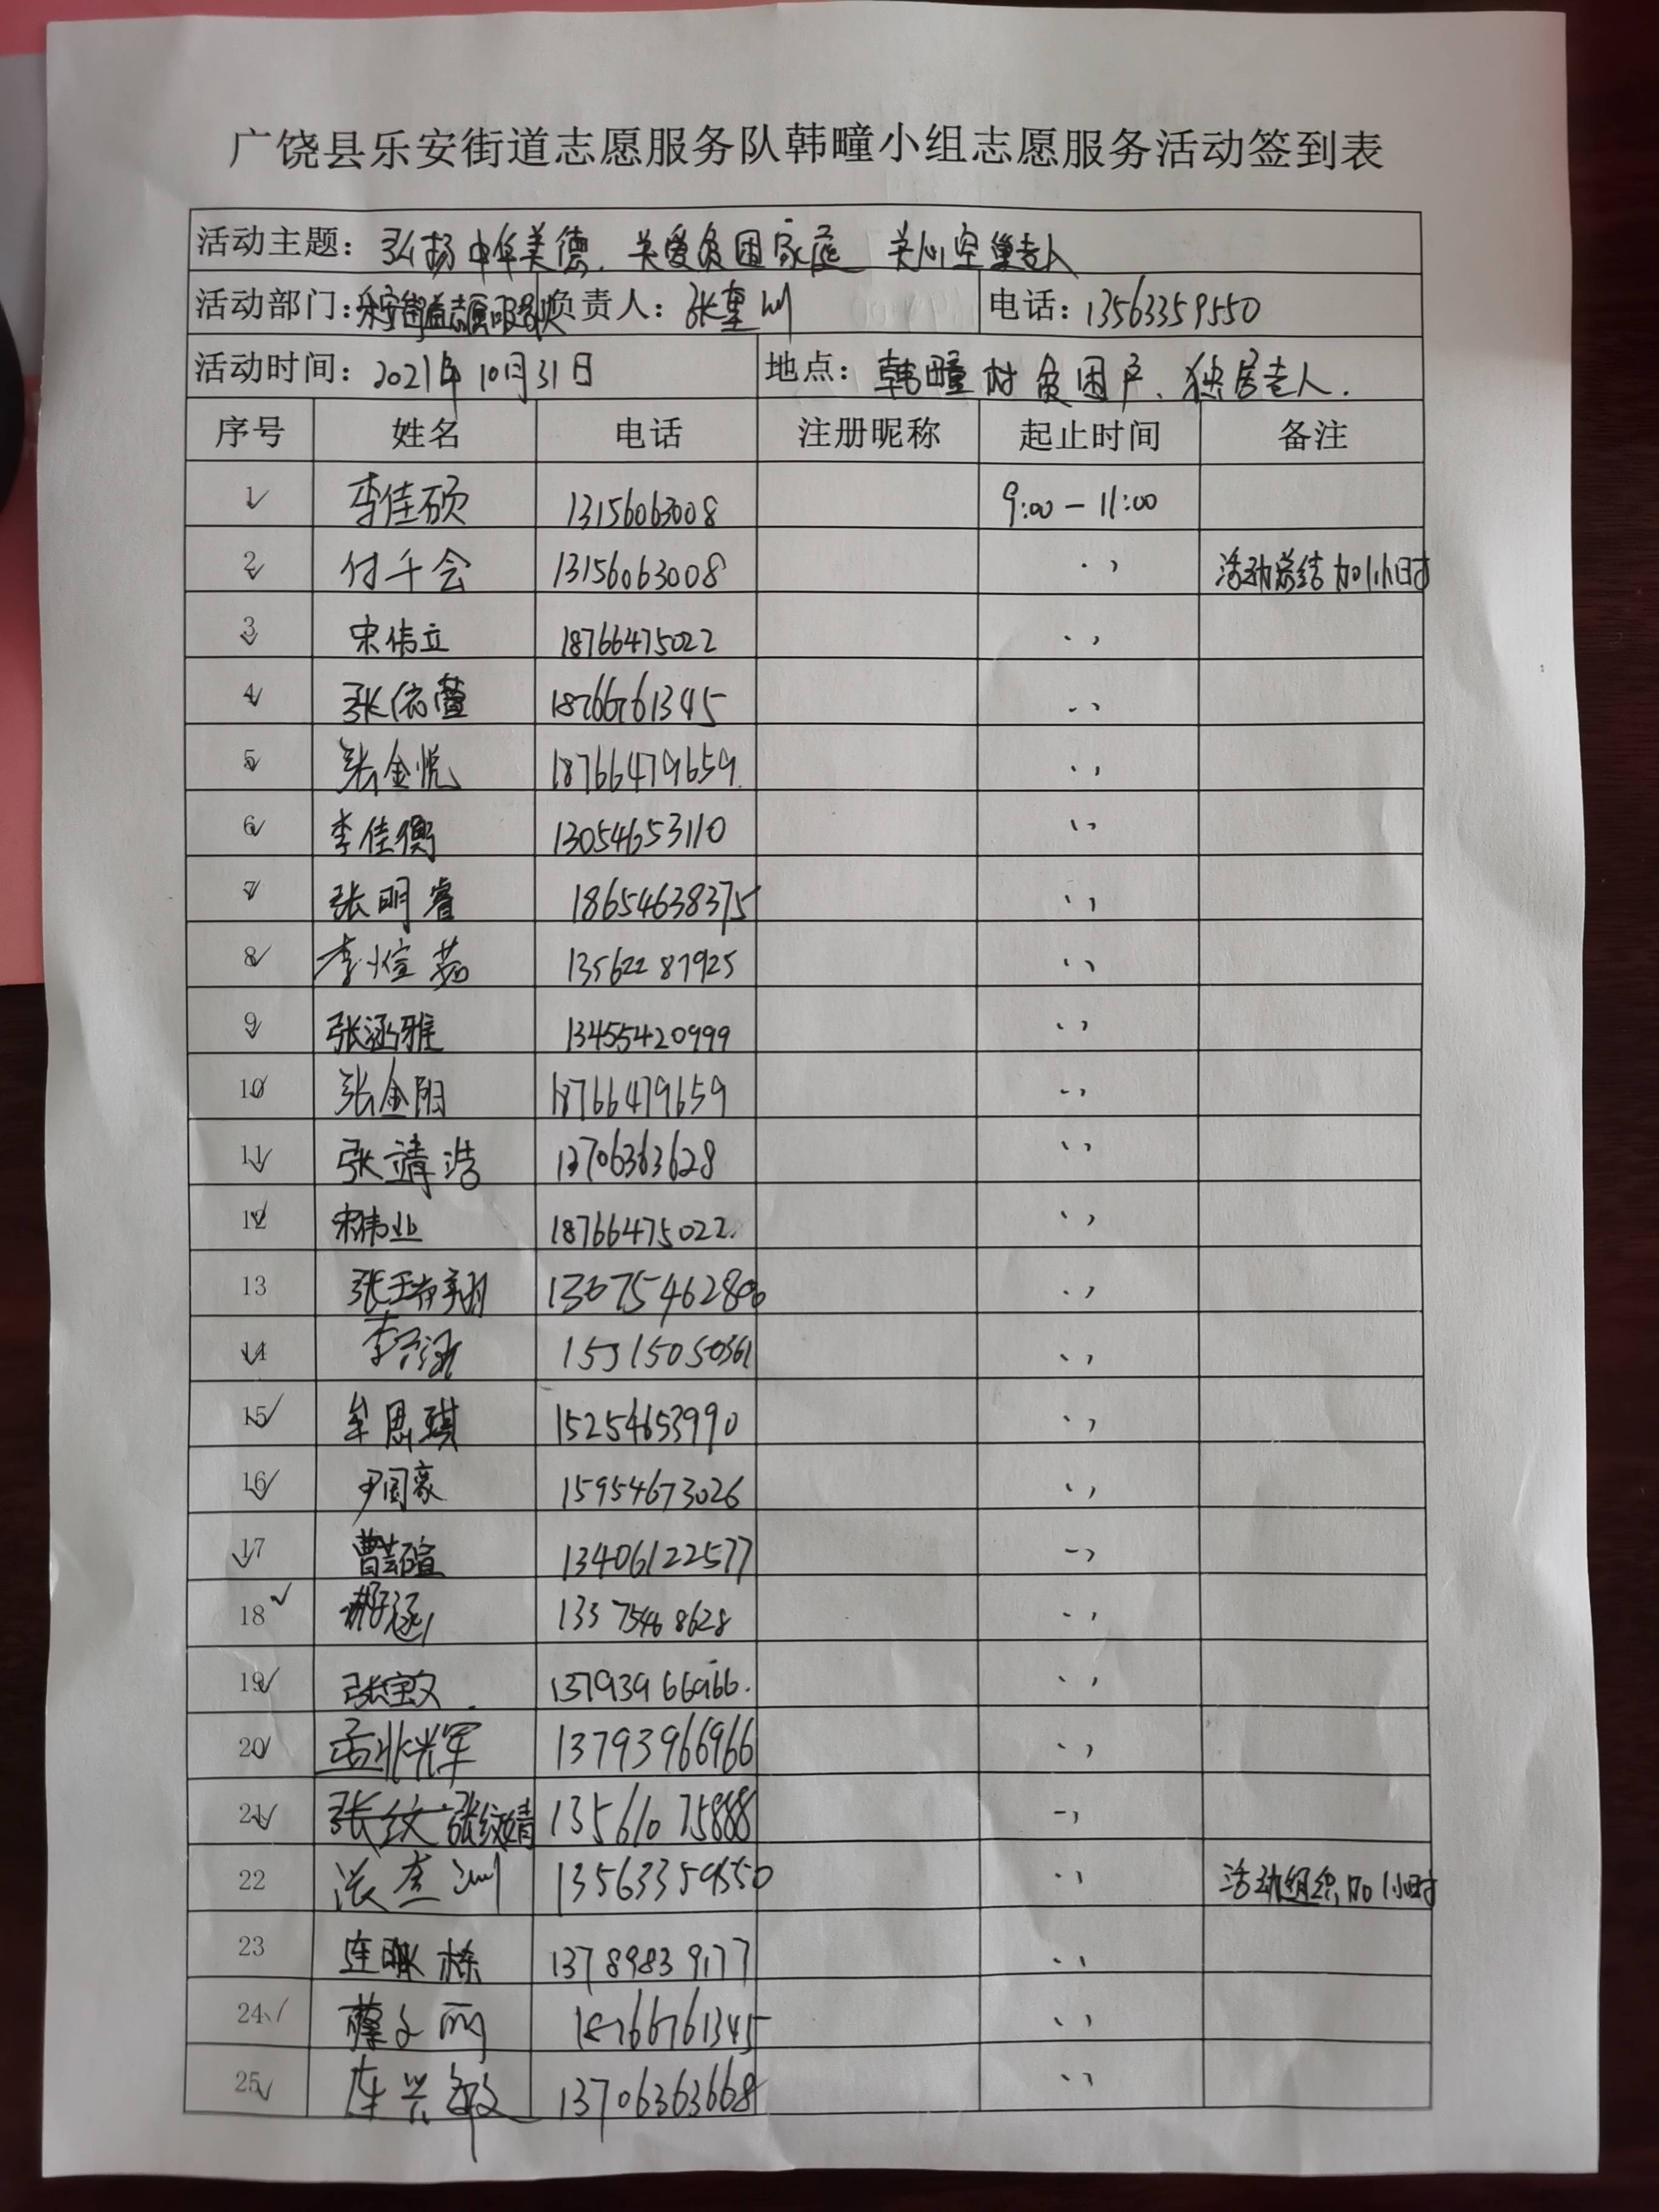 广饶县乐安街道志愿服务队韩疃小组志愿服务活动签到表
活动主题：弘扬中华美德、关爱贫困家庭 关心空巢老人
活动部门： 负责人：张 电话：13563359550
活动时间：2021年10月31日 地点：韩疃村贫困户、独居老人.
序号 姓名 电话 注册昵称 起止时间 备注
1 李佳硕 13156063008 9:00-11:00
2 付千会 13156063008 〃 活动总结加1小时
3 宋伟立 18766475022 〃
4 张依萱 18766761345 〃
5 张金悦 18766479659 〃
6 李佳衡 13054653110 〃
7 张明睿 18654638375 〃
8 李愃茹 13562287925 〃
9 张涵雅 13455420999 〃
10 张金阳 18766479659 〃
11 张靖浩 13706363628 〃
12 宋伟业 18766475022 〃
13 张 〃
14 李 15315050361 〃
15 牟思琪 15254653990 〃
16 尹国豪 15954673026 〃
17 曹 13406122577 〃
18 13375468628 〃
19 张宝文 13793966966 〃
20 孟兆辉 13793966966 〃
21 张纹 张纹婧 13561075888 〃
22 13563359550 〃 活动组织加1小时
23 连 栋 13789839177 〃
24 18766761345 〃
25 连兴敏 13706363668 〃